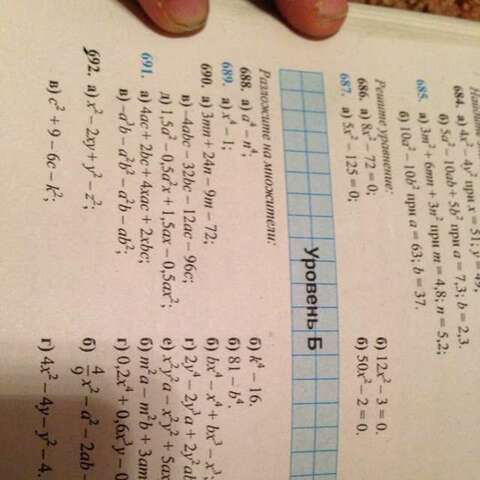 684. а) 4x² – 4y² при x = 51, y = 49;
б) 5a² – 10ab + 5b² при a = 7,3; b = 2,3.
685. а) 3m² + 6mn + 3n² при m = 4,8; n = 5,2;
б) 10a² – 10b² при a = 63; b = 37.
Решите уравнение:
686. а) 8x² – 72 = 0; б) 12x² – 3 = 0.
687. а) 5x² – 125 = 0; б) 50x² – 2 = 0.
Уровень Б
Разложите на множители:
688. а) a⁴ – n⁴; б) k⁴ – 16.
689. а) x⁴ – 1; б) 81 – b⁴.
690. а) 3mn + 24n – 9m – 72; б) bx⁴ – x⁴ + bx³ – x³;
в) –4abc – 32bc – 12ac – 96c; г) 2y⁴ – 2y³a + 2y²ab
д) 1,5a² – 0,5a²x + 1,5ax – 0,5ax²; е) x²y²a – x²y² + 5ax
691. а) 4ac + 2bc + 4xac + 2xbc; б) m²a – m²b + 3am
в) –a³b – a²b² – a²b – ab²; г) 0,2x⁴ + 0,6x³y – 0
692. а) x² – 2xy + y² – z²; б) 4/9 x² – a² – 2ab –
в) c² + 9 – 6c – k²; г) 4x² – 4y – y² – 4.